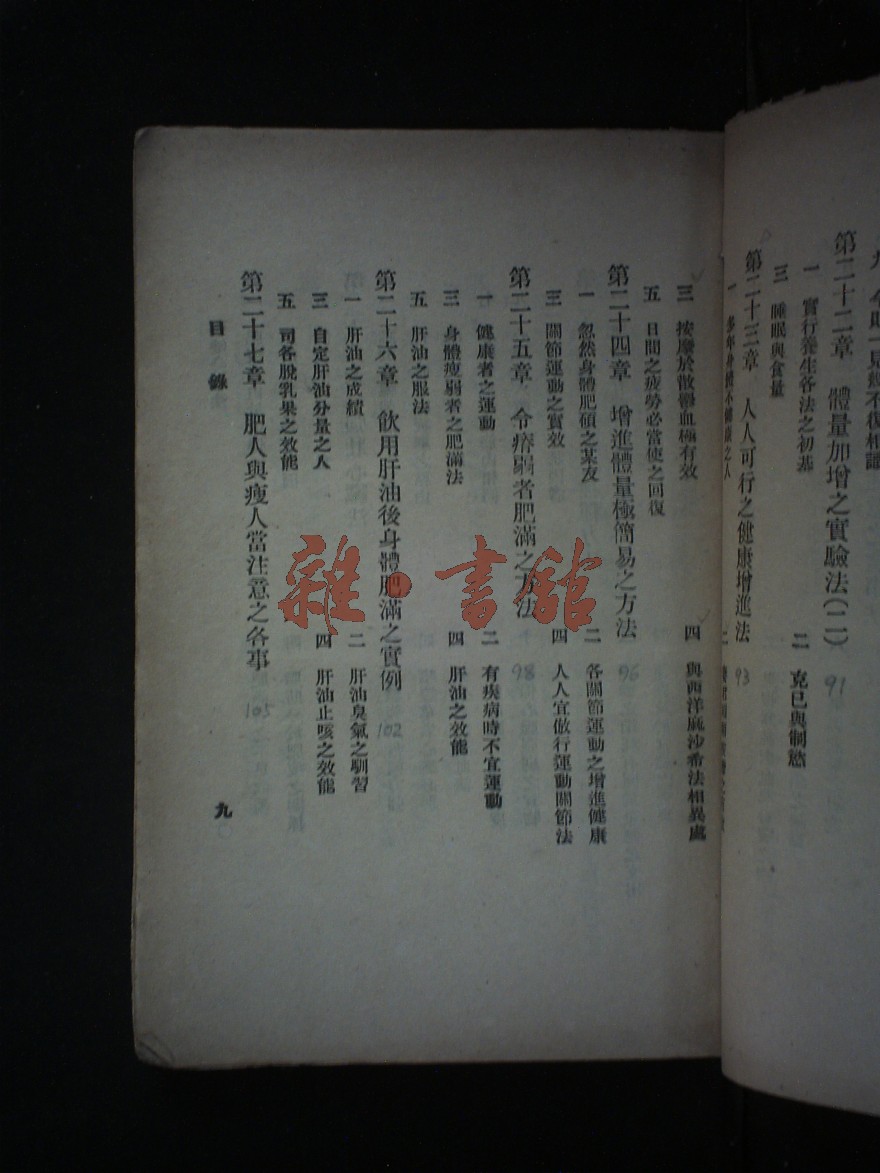 第二十二章　體量加增之實驗法(二) 91
一　實行養生各法之初基　二　克己與制慾
三　睡眠與食量
第二十三章　人人可行之健康增進法 93
一　多年身體不健康之人　二
三　按摩於散鬱血極有效　四　與西洋麻沙希法相異處
五　日間之疲勞必當使之回復
第二十四章　增進體量極簡易之方法 96
一　忽然身體肥碩之某友　二　各關節運動之增進健康
三　關節運動之實效　四　人人宜倣行運動關節法
第二十五章　令瘠弱者肥滿之方法 98
一　健康者之運動　二　有疾病時不宜運動
三　身體瘦弱者之肥滿法　四　肝油之效能
五　肝油之服法
第二十六章　飲用肝油後身體肥滿之實例 102
一　肝油之成績　二　肝油臭氣之馴習
三　自定肝油分量之人　四　肝油止咳之效能
五　司各脫乳果之效能
第二十七章　肥人與瘦人當注意之各事 105
目錄　九
雜·書館